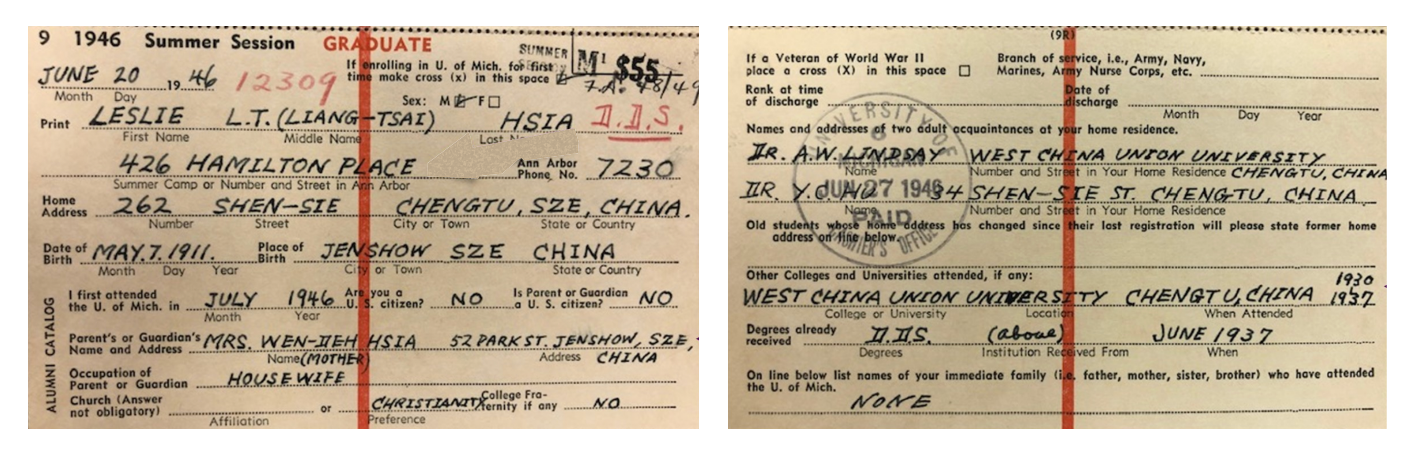 9 1946 Summer Session GRADUATE
SUMMER
M1 $55
If enrolling in U. of Mich. for first
time make cross (x) in this space
JUNE 20 19 46 12309
48/49
Month Day
Sex: M F
Print LESLIE L.T. (LIANG-TSAI) HSIA D.D.S.
First Name Middle Name Last
426 HAMILTON PLACE Ann Arbor Phone No. 7230
Summer Camp or Number and Street in Ann Arbor
Home Address 262 SHEN-SIE CHENGTU, SZE, CHINA.
Number Street City or Town State or Country
Date of Birth MAY. 7. 1911. Place of Birth JENSHOW SZE CHINA
Month Day Year City or Town State or Country
I first attended the U. of Mich. in JULY 1946 Are you a U. S. citizen? NO Is Parent or Guardian a U. S. citizen? NO
Month Year
Parent's or Guardian's Name and Address MRS. WEN-DEH HSIA 52 PARK ST. JENSHOW, SZE,
Name (MOTHER) Address CHINA
Occupation of Parent or Guardian HOUSEWIFE
Church (Answer not obligatory) or CHRISTIANITY College Fraternity if any NO
Affiliation Preference
ALUMNI CATALOG
(9R)
If a Veteran of World War II place a cross (X) in this space
Branch of service, i.e., Army, Navy, Marines, Army Nurse Corps, etc.
Rank at time of discharge Date of discharge
Month Day Year
Names and addresses of two adult acquaintances at your home residence.
DR. A.W. LINDSAY WEST CHINA UNION UNIVERSITY
Name Number and Street in Your Home Residence CHENGTU, CHINA
DR Y.C. HU 34 SHEN-SIE ST. CHENGTU, CHINA
Name Number and Street in Your Home Residence
UNIVERSITY OF MICHIGAN
JUN 27 1946
PAID
OFFICE
Old students whose home address has changed since their last registration will please state former home
address on line below.
Other Colleges and Universities attended, if any: 1930
WEST CHINA UNION UNIVERSITY CHENGTU, CHINA 1937
College or University Location When Attended
Degrees already received D.D.S. (above) JUNE 1937
Degrees Institution Received From When
On line below list names of your immediate family (i.e. father, mother, sister, brother) who have attended
the U. of Mich.
NONE